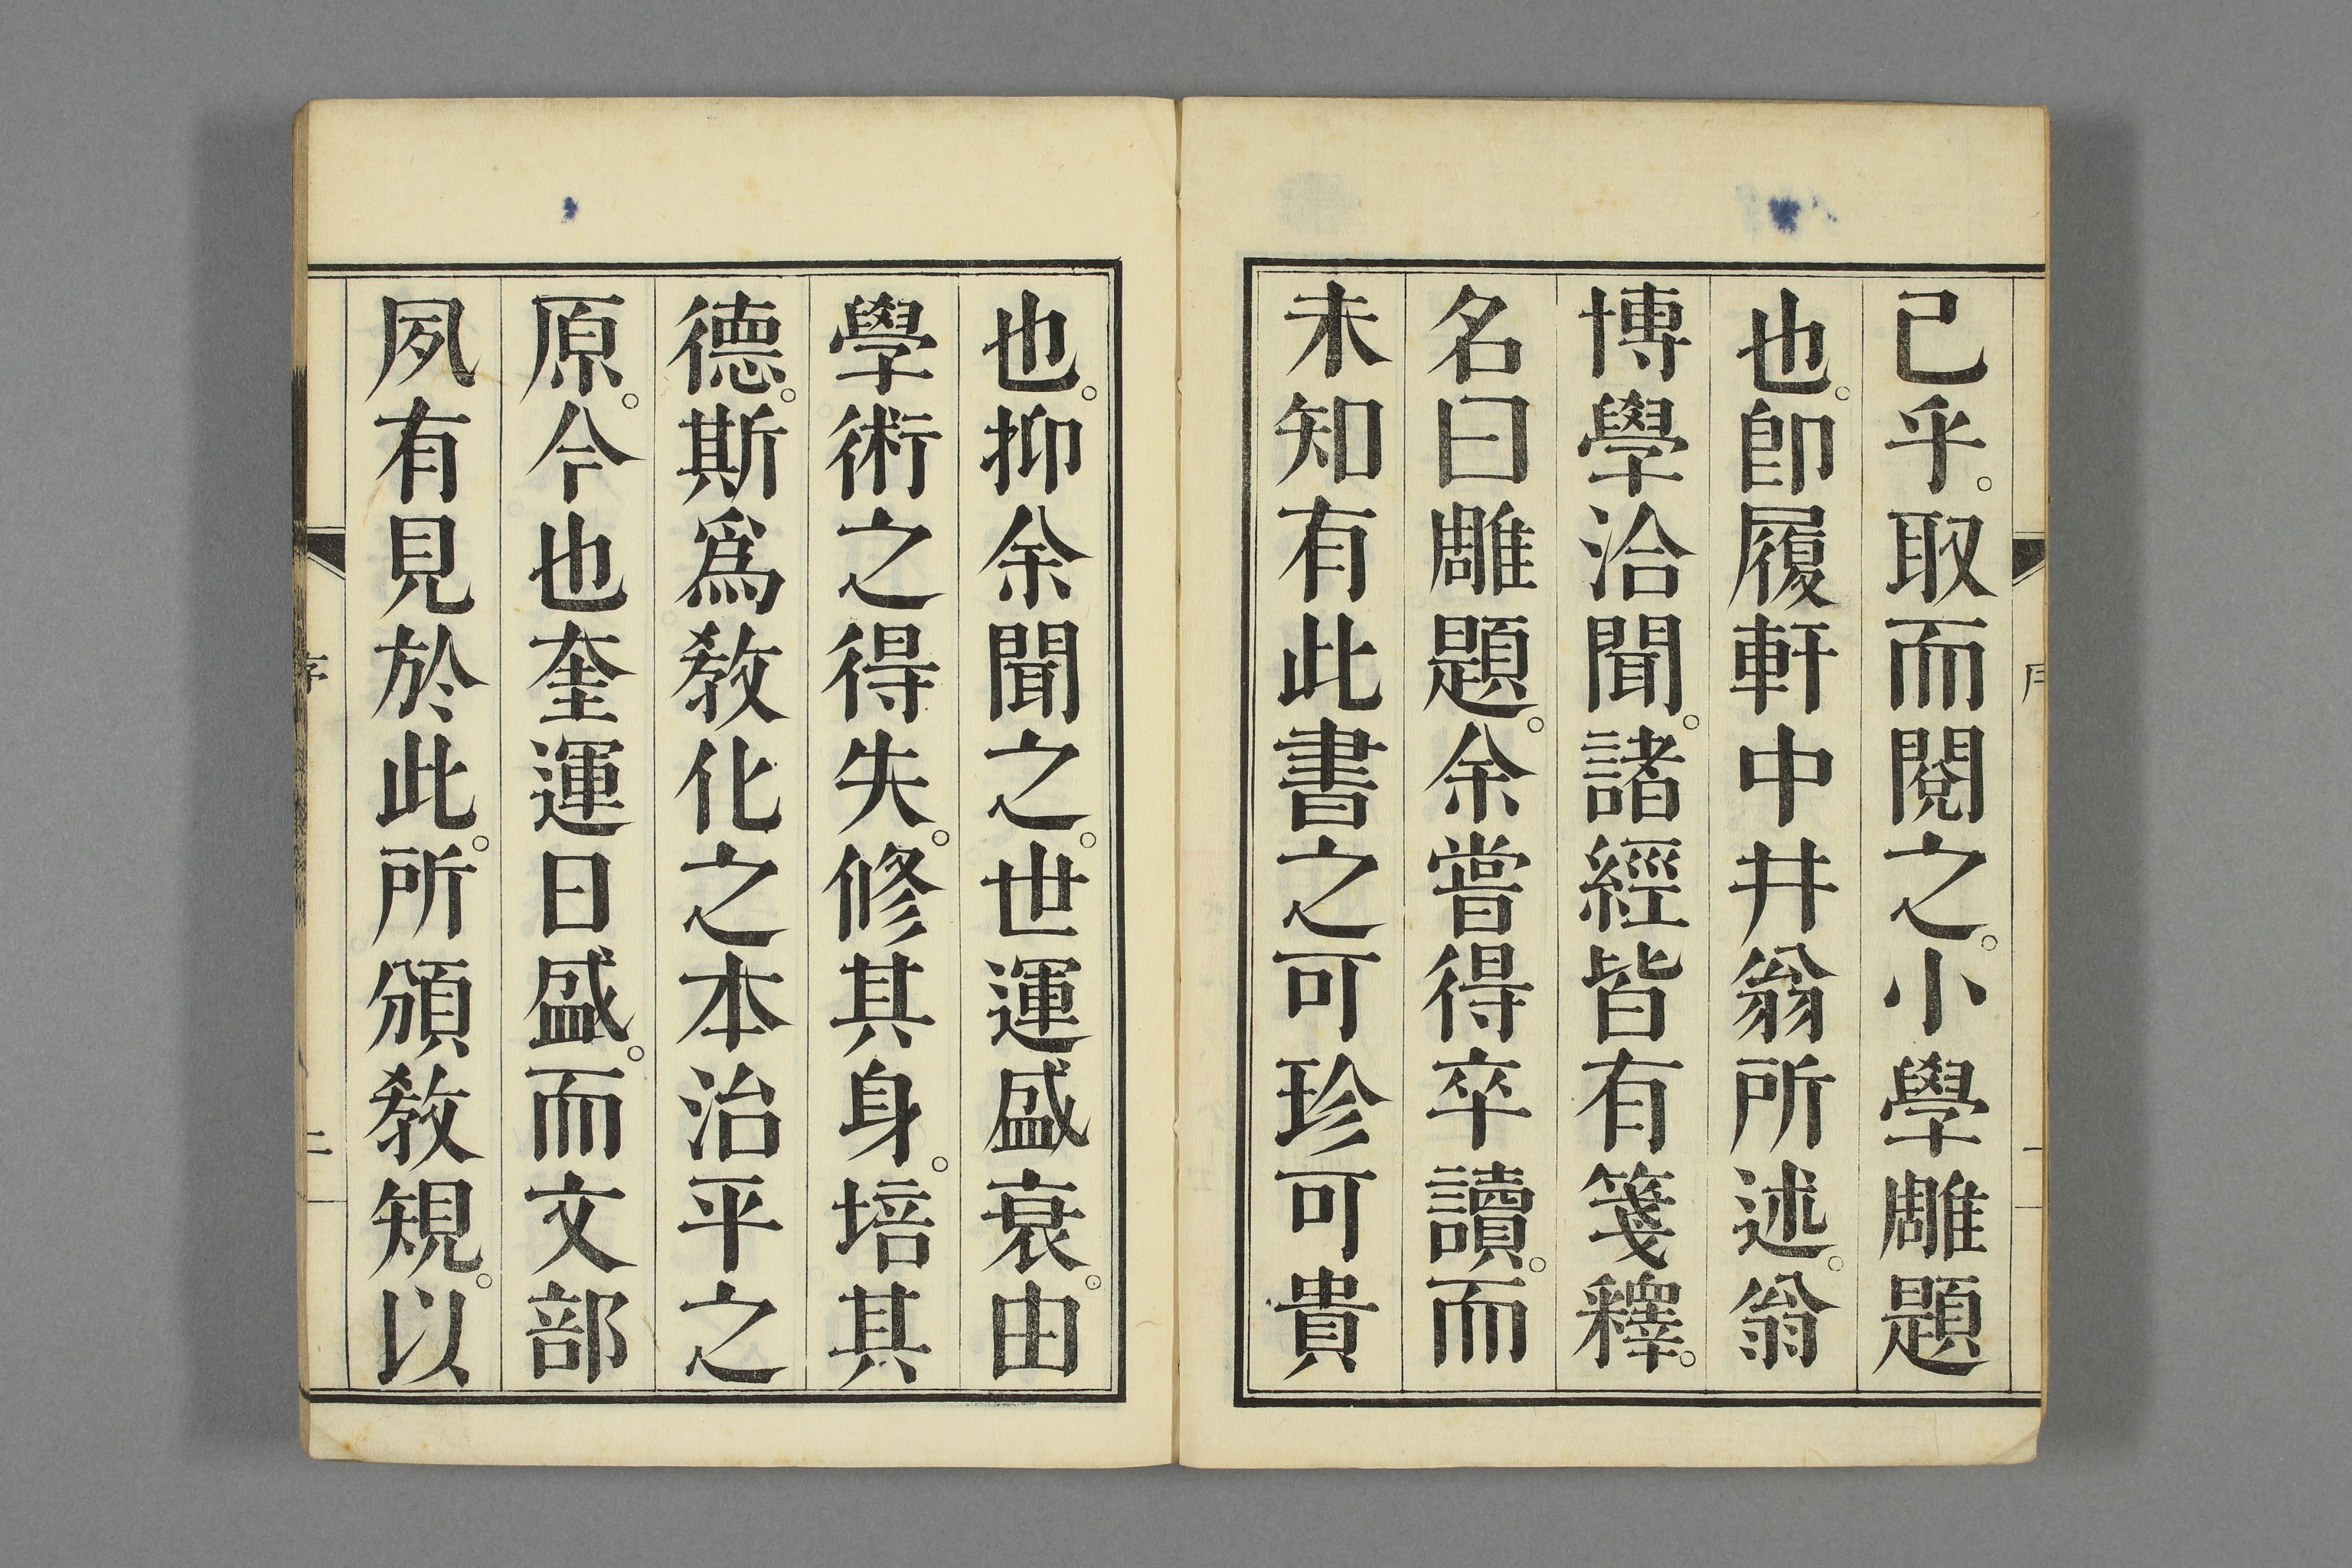 己乎。取而閱之。小學雕題
也。卽履軒中井翁所述。翁
博學洽聞。諸經皆有箋釋。
名曰雕題。余嘗得卒讀。而
未知有此書之可珍可貴
也。抑余聞之。世運盛衰。由
學術之得失。修其身。培其
德。斯爲敎化之本治平之
原。今也奎運日盛。而文部
夙有見於此。所頒敎規。以
序
二